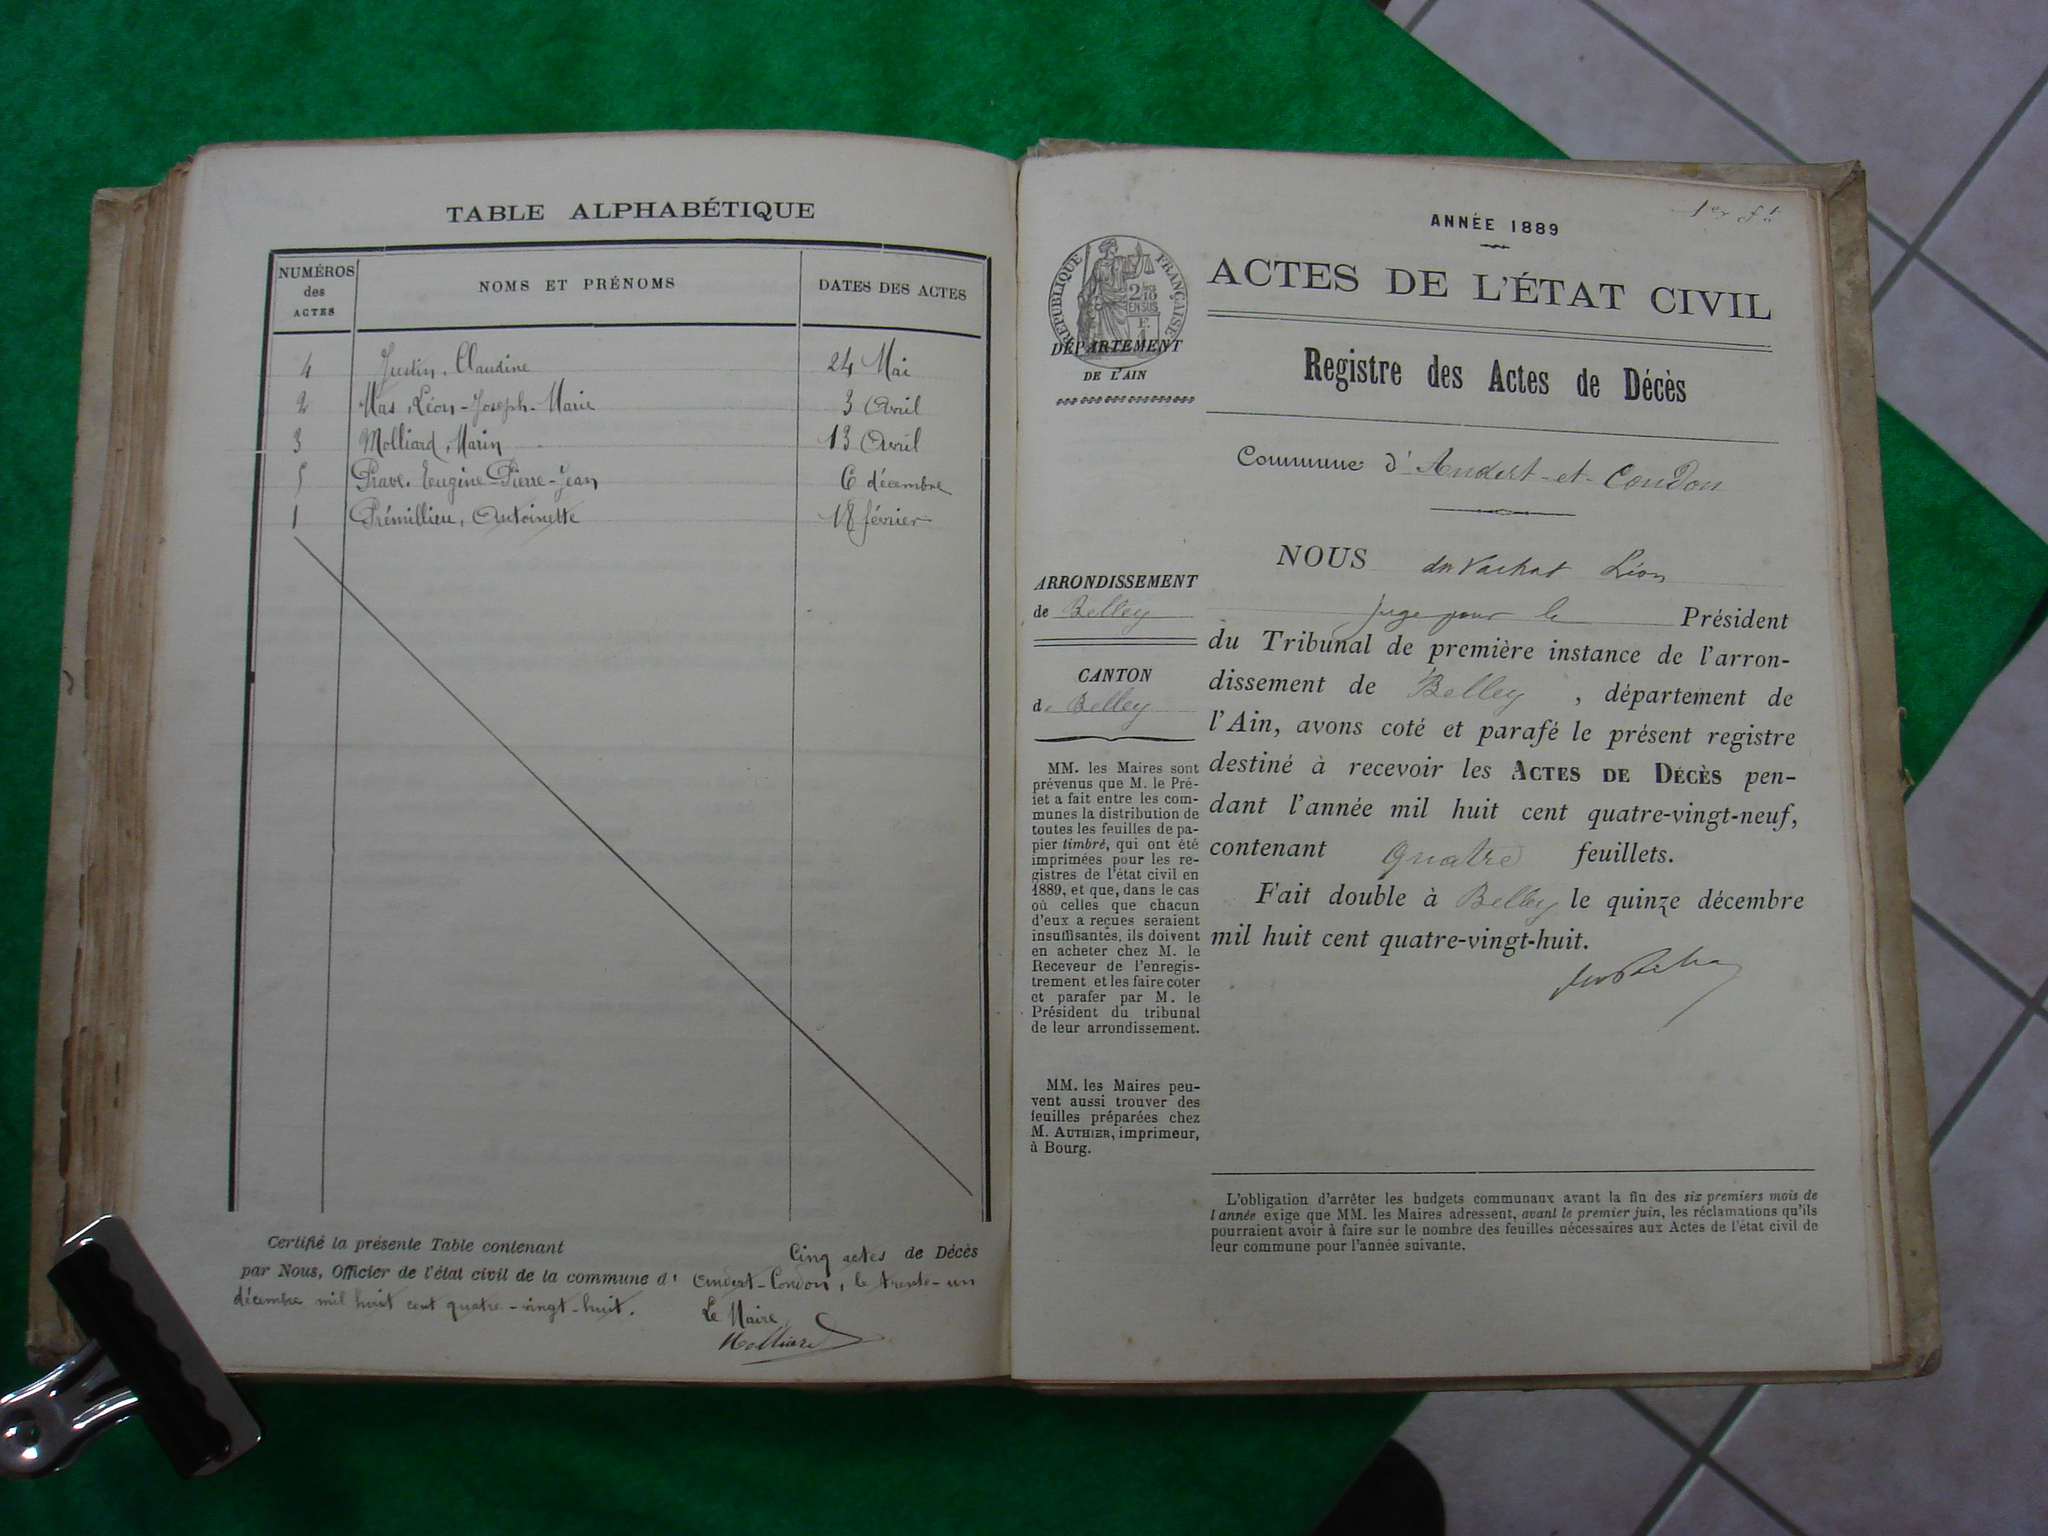 TABLE ALPHABÉTIQUE
NUMÉROS des ACTES
NOMS ET PRÉNOMS
DATES DES ACTES
4 Justin, Claudine 24 Mai
2 Mas, Léon-Joseph-Marie 3 Avril
3 Molliard, Marin 13 Avril
5 Prave. Eugène-Pierre-Jean 6 décembre
1 Prémillieu, Antoinette 18 février
Certifié la présente Table contenant Cinq actes de Décès
par Nous, Officier de l'état civil de la commune d' Andert-Condon, le trente-un
décembre mil huit cent quatre-vingt-huit.
Le Maire,
1er ft
ANNÉE 1889
RÉPUBLIQUE FRANÇAISE
2/10
EN SUS
ACTES DE L'ÉTAT CIVIL
DÉPARTEMENT
DE L'AIN
Registre des Actes de Décès
Commune d'Andert-et-Condon
ARRONDISSEMENT
de Belley
CANTON
de Belley
MM. les Maires sont
prévenus que M. le Pré-
fet a fait entre les com-
munes la distribution de
toutes les feuilles de pa-
pier timbré, qui ont été
imprimées pour les re-
gistres de l'état civil en
1889, et que, dans le cas
où celles que chacun
d'eux a reçues seraient
insuffisantes, ils doivent
en acheter chez M. le
Receveur de l'enregis-
trement et les faire coter
et parafer par M. le
Président du tribunal
de leur arrondissement.
MM. les Maires peu-
vent aussi trouver des
feuilles préparées chez
M. AUTHIER, imprimeur,
à Bourg.
NOUS du Vachat Léon
juge pour le Président
du Tribunal de première instance de l'arron-
dissement de Belley, département de
l'Ain, avons coté et parafé le présent registre
destiné à recevoir les ACTES DE DÉCÈS pen-
dant l'année mil huit cent quatre-vingt-neuf,
contenant quatre feuillets.
Fait double à Belley le quinze décembre
mil huit cent quatre-vingt-huit.
L'obligation d'arrêter les budgets communaux avant la fin des six premiers mois de
l'année exige que MM. les Maires adressent, avant le premier juin, les réclamations qu'ils
pourraient avoir à faire sur le nombre des feuilles nécessaires aux Actes de l'état civil de
leur commune pour l'année suivante.